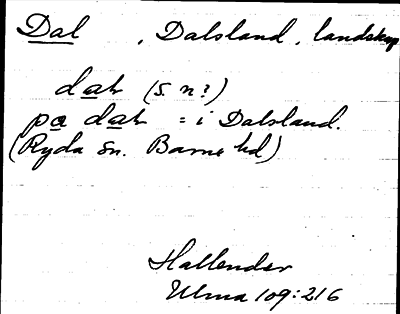 Dal , Dalsland, landskap
dał (s. n?)
på dał = i Dalsland.
(Ryda sn. Barne hd)
Hallender
Ulma 109:216